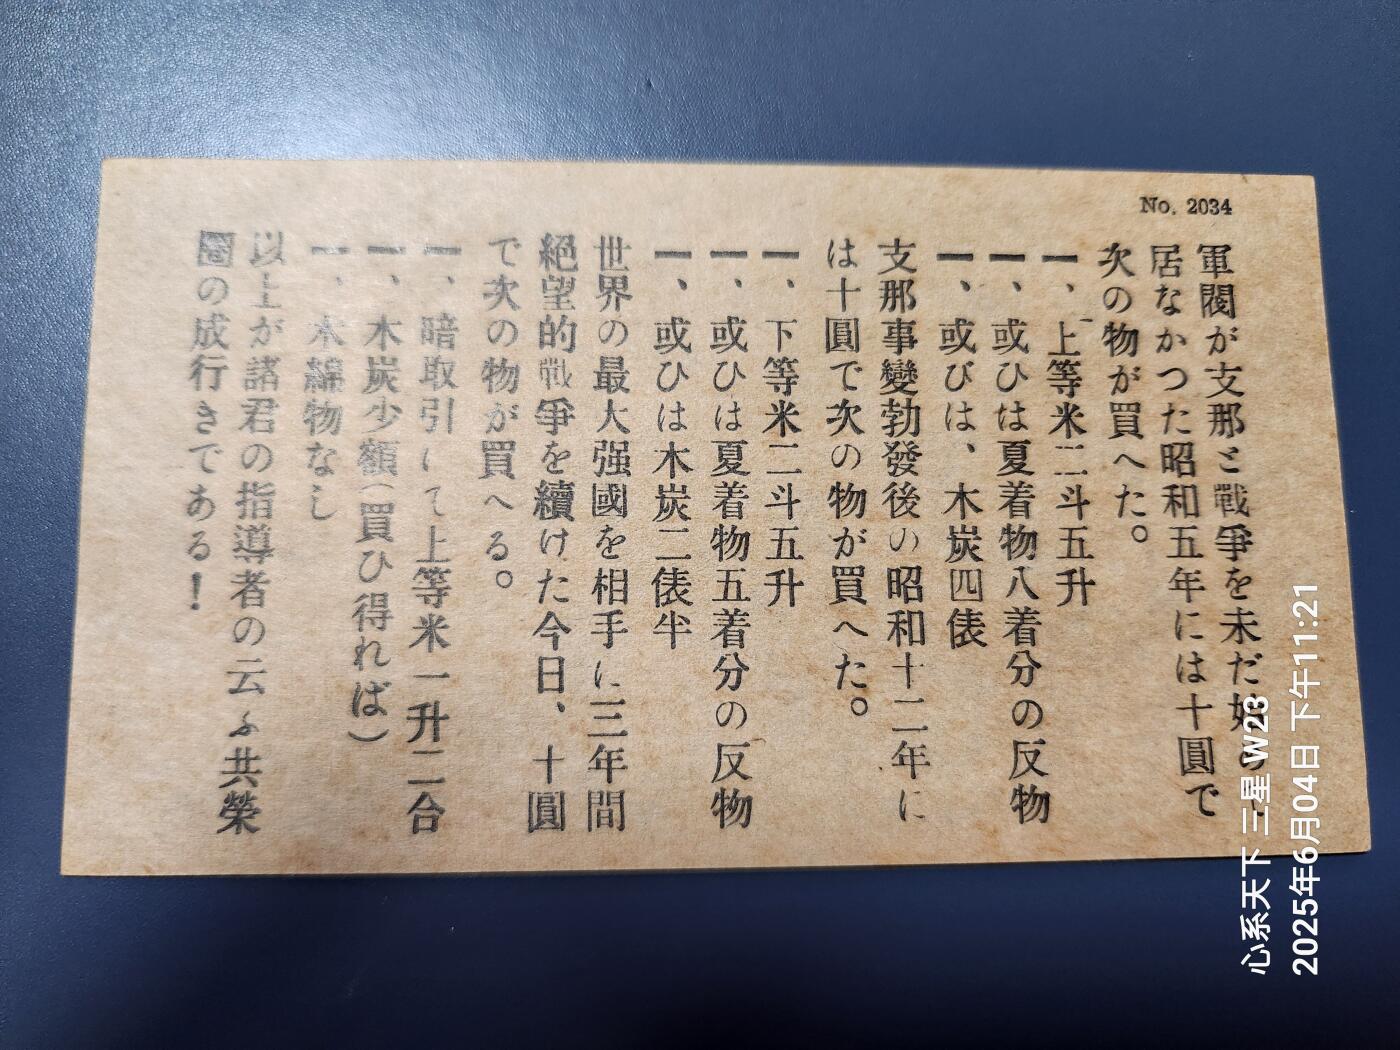 No. 2034
軍閥が支那と戰爭を未だ始
居なかつた昭和五年には十圓で
次の物が買へた。
一、上等米二斗五升
一、或ひは夏着物八着分の反物
一、或ひは、木炭四俵
支那事變勃發後の昭和十二年に
は十圓で次の物が買へた。
一、下等米二斗五升
一、或ひは夏着物五着分の反物
一、或ひは木炭二俵半
世界の最大强國を相手に三年間
絕望的戰爭を續けた今日、十圓
で次の物が買へる。
一、暗取引にて上等米一升二合
一、木炭少額(買ひ得れば)
一、木綿物なし
以上が諸君の指導者の云ふ共榮
圈の成行きである!
心系天下 三星 W23
2025年6月04日 下午11:21